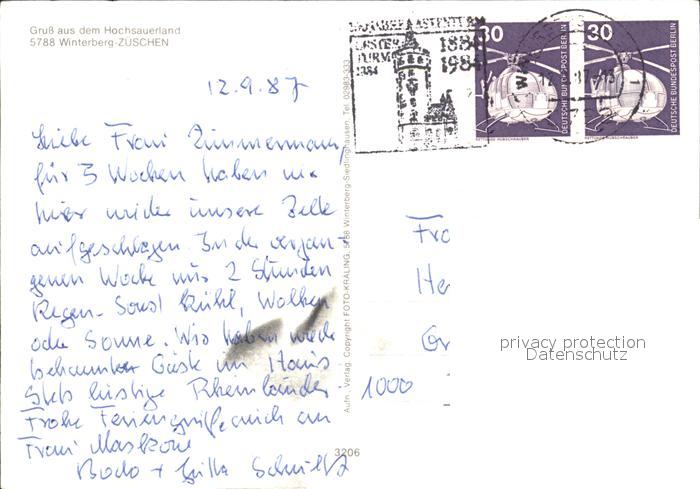 Gruß aus dem Hochsauerland
5788 Winterberg-ZÜSCHEN
12.9.87
Liebe Frau Zimmermann,
für 3 Wochen haben wir
hier wieder unsere Zelte
aufgeschlagen. In der vergan-
genen Woche nur 2 Stunden
Regen. Sonst kühl, Wolken
oder Sonne. Wir haben wieder
bekannte Gäste im Haus
Stets lustige Rheinländer
Frohe Feriengrüße auch an
Frau
Bodo + Schultz
Aufn., Verlag, Copyright FOTO-KRÄLING, 5788 Winterberg-Siedlinghausen, Tel. 02983-333
3206
1884
1984
30
DEUTSCHE BUNDESPOST BERLIN
RETTUNGS-HUBSCHRAUBER
30
DEUTSCHE BUNDESPOST BERLIN
RETTUNGS-HUBSCHRAUBER
Fra
He
1000
privacy protection
Datenschutz